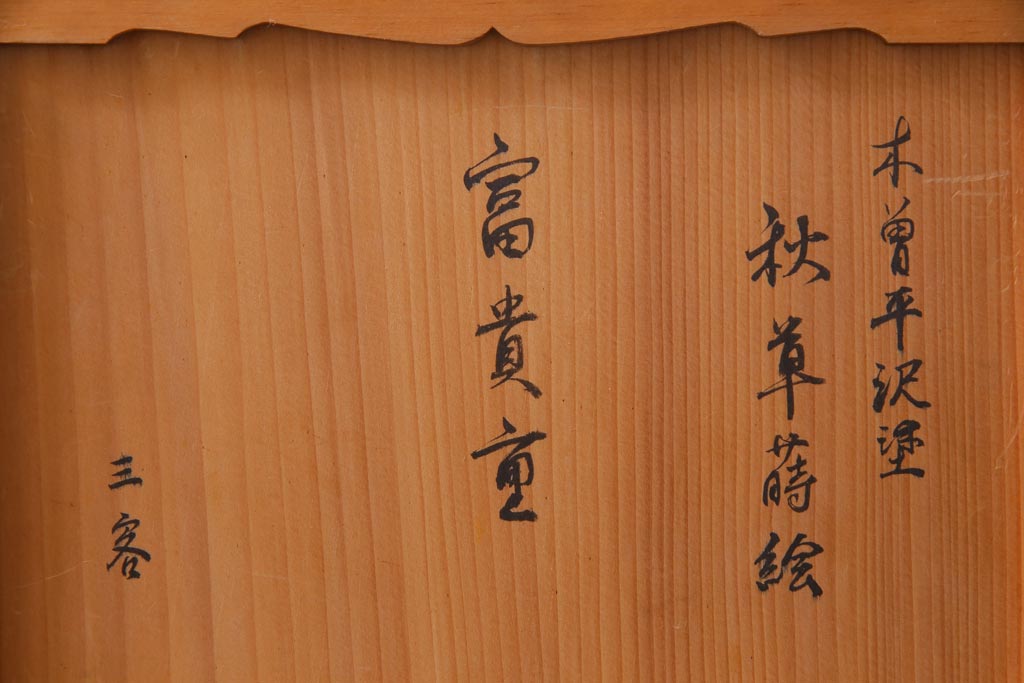 木曽平沢塗
秋草蒔絵
富貴重
三客